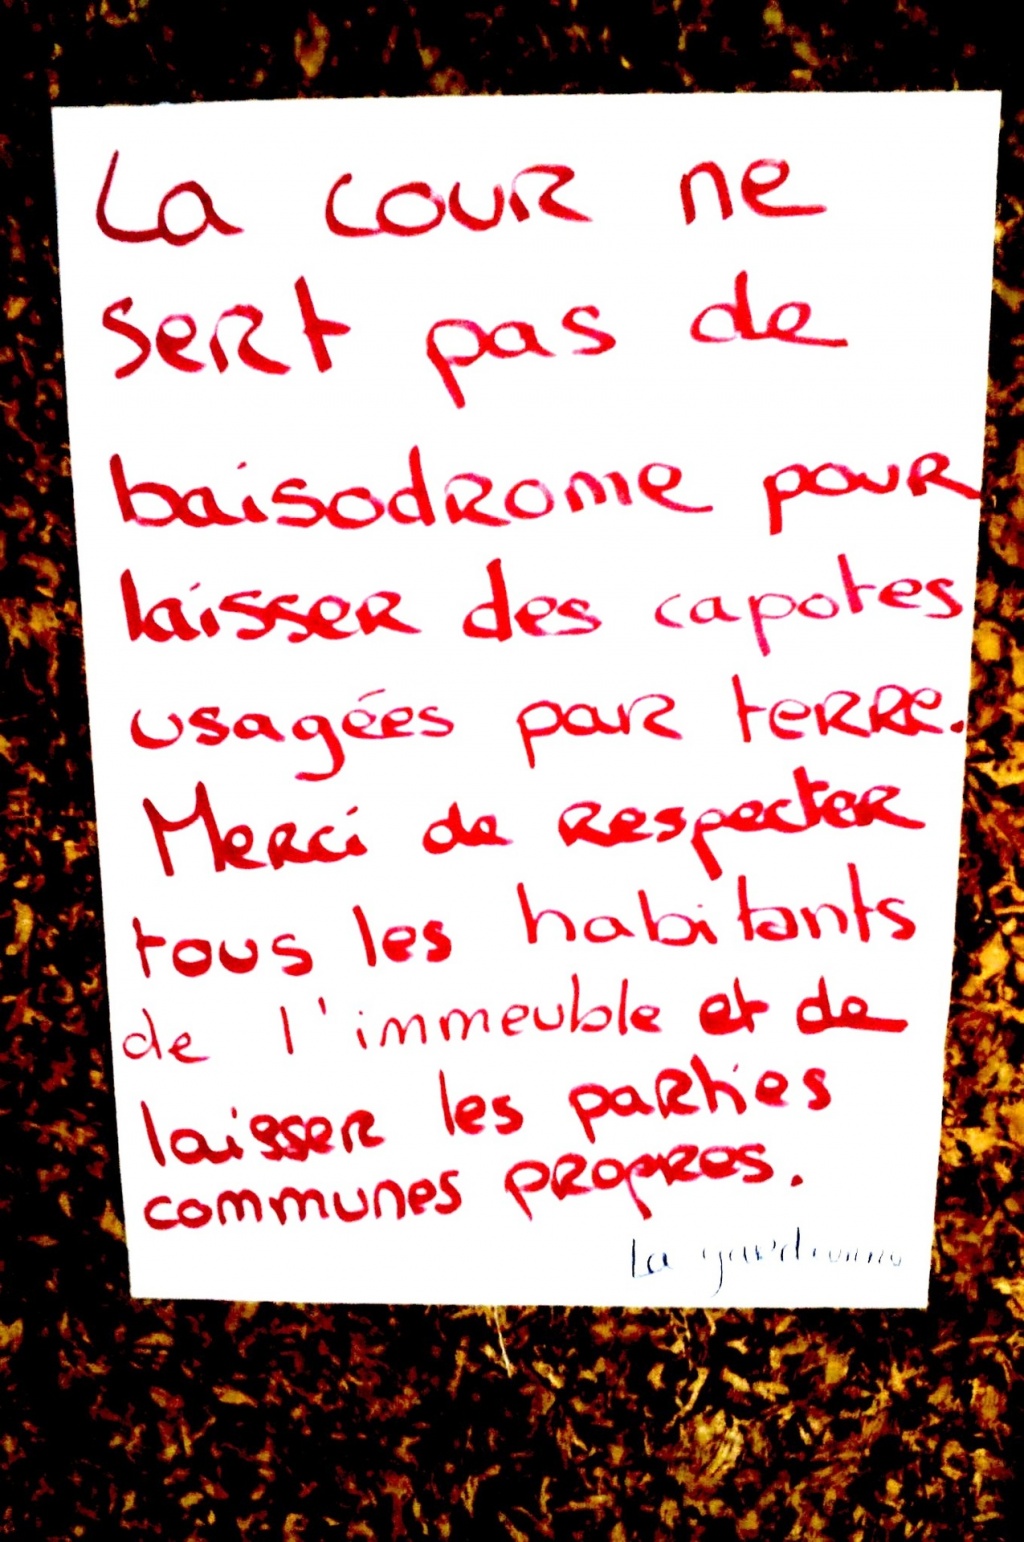 La cour ne
sert pas de
baisodrome pour
laisser des capotes
usagées par terre.
Merci de respecter
tous les habitants
de l'immeuble et de
laisser les parties
communes propres.
La gardienne